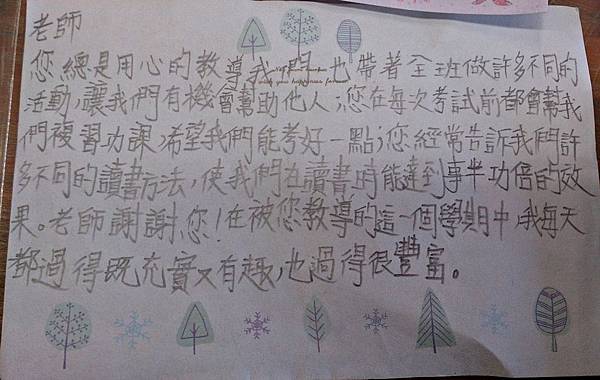 老師
您總是用心的教導我們,也帶著全班做許多不同的
活動,讓我們有機會幫助他人;您在每次考試前都會幫我
們複習功課,希望我們能考好一點;您經常告訴我們許
多不同的讀書方法,使我們在讀書時能達到事半功倍的效
果。老師謝謝您!在被您教導的這一個學期中,我每天
都過得既充實又有趣,也過得很豐富。